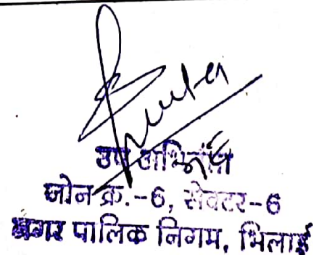 उप अभियंता
जोन क्र.-6, सेक्टर-6
नगर पालिक निगम, भिलाई